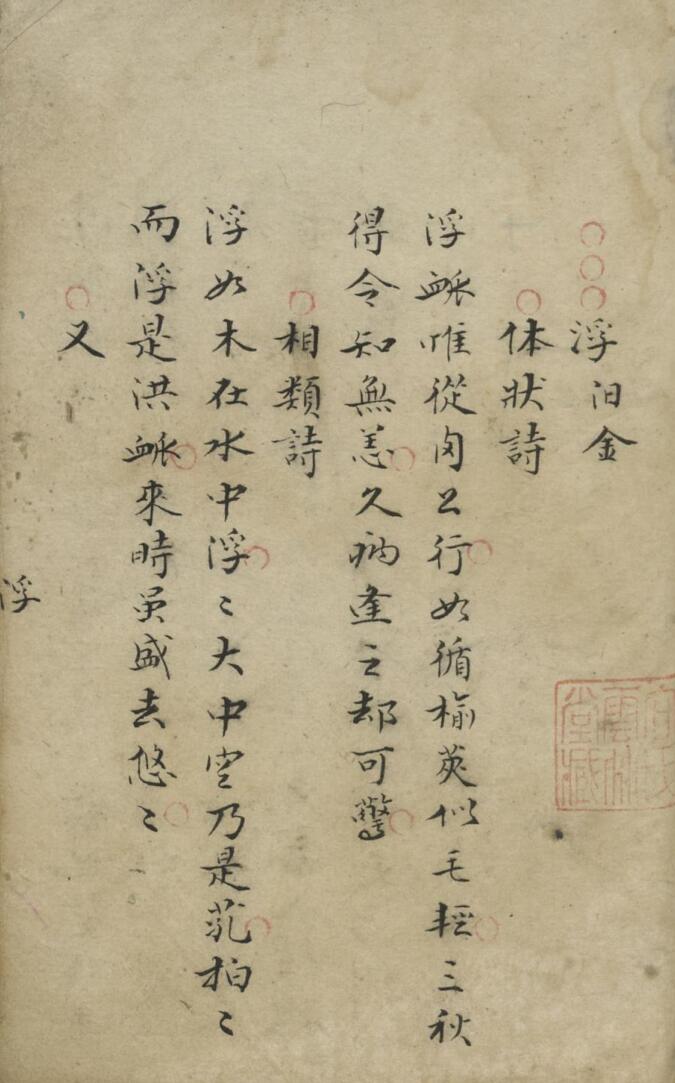 浮 金
体狀詩
浮衇惟從肉上行如循榆莢似毛輕三秋
得令知無恙久病逢之却可驚
相類詩
浮如木在水中浮〻大中空乃是芤拍〻
而浮是洪衇來時虽盛去悠〻
又
浮